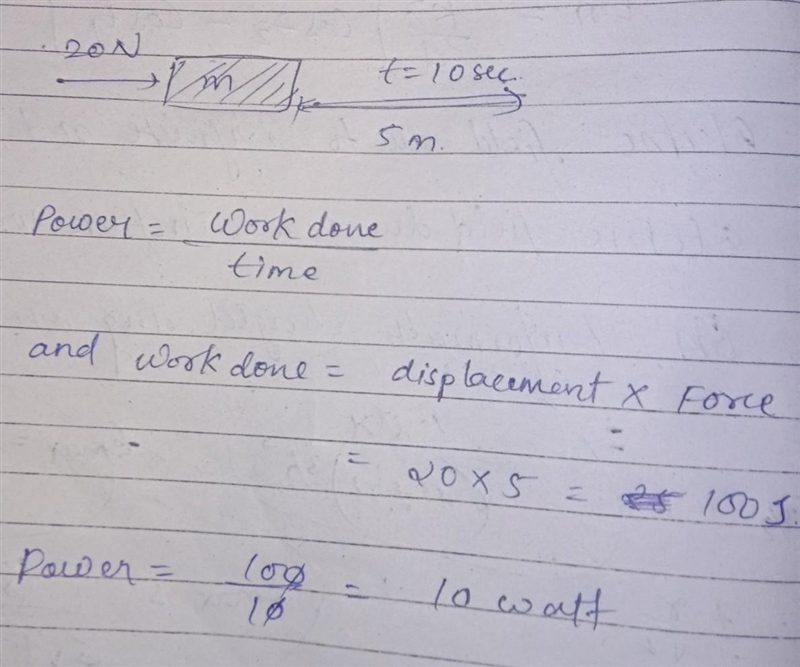 20N
m
t=10sec.
5m.
Power = Work done
time
and work done = displacement × Force
= 20 × 5 = 100 J.
Power = 100
10
= 10 watt